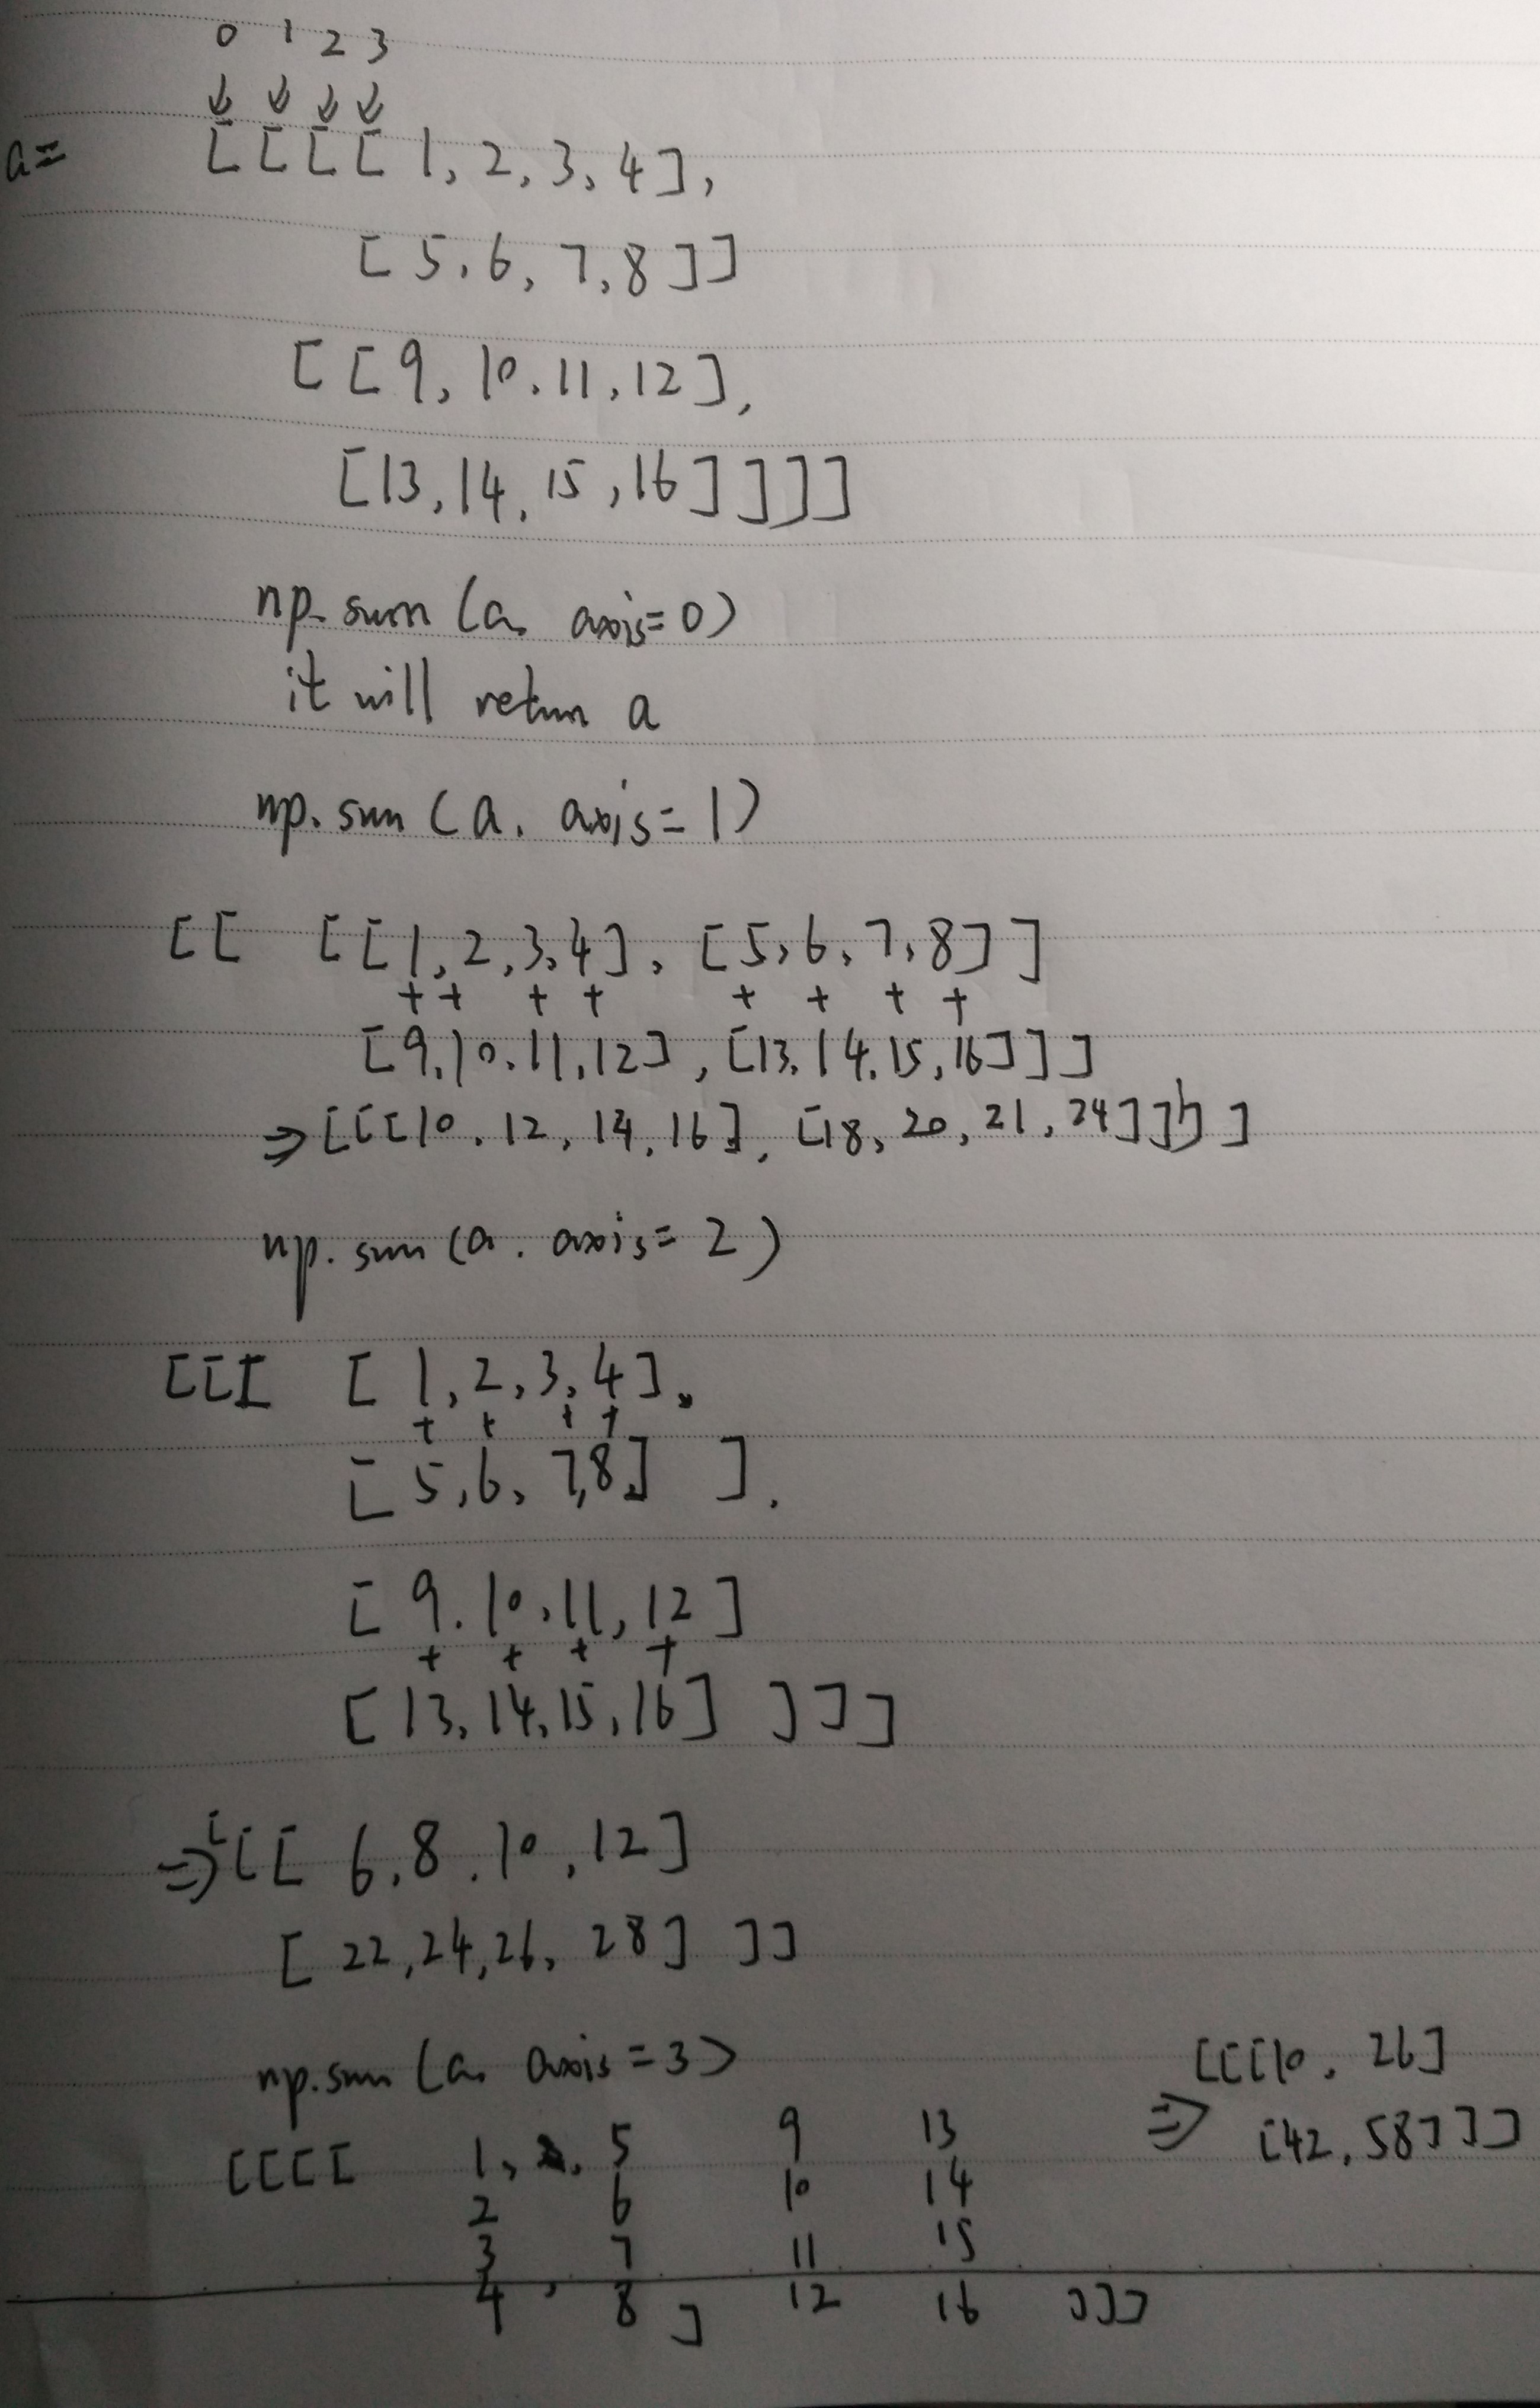 0 1 2 3
a= [[[[1, 2, 3, 4],
[5, 6, 7, 8]]
[[9, 10, 11, 12],
[13, 14, 15, 16]]]]
np.sum (a, axis=0)
it will return a
np.sum (a, axis=1)
[[ [[1, 2, 3, 4], [5, 6, 7, 8]]
+ + + + + + + +
[9, 10, 11, 12], [13, 14, 15, 16]]]
⇒ [[[10, 12, 14, 16], [18, 20, 21, 24]]]]
np.sum (a, axis=2)
[[[ [1, 2, 3, 4],
+ + + +
[5, 6, 7, 8] ],
[9, 10, 11, 12]
+ + + +
[13, 14, 15, 16] ]]]
⇒ [[[6, 8, 10, 12]
[22, 24, 26, 28] ]]
np.sum (a, axis=3)
[[[[ 1, 5 9 13
2 6 10 14
3 7 11 15
4 , 8 ] 12 16 ]]]
⇒ [[[10, 26]
[42, 58]]]